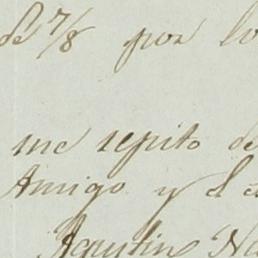 de 7/8 por lo
me repito de
Amigo y
Agustin